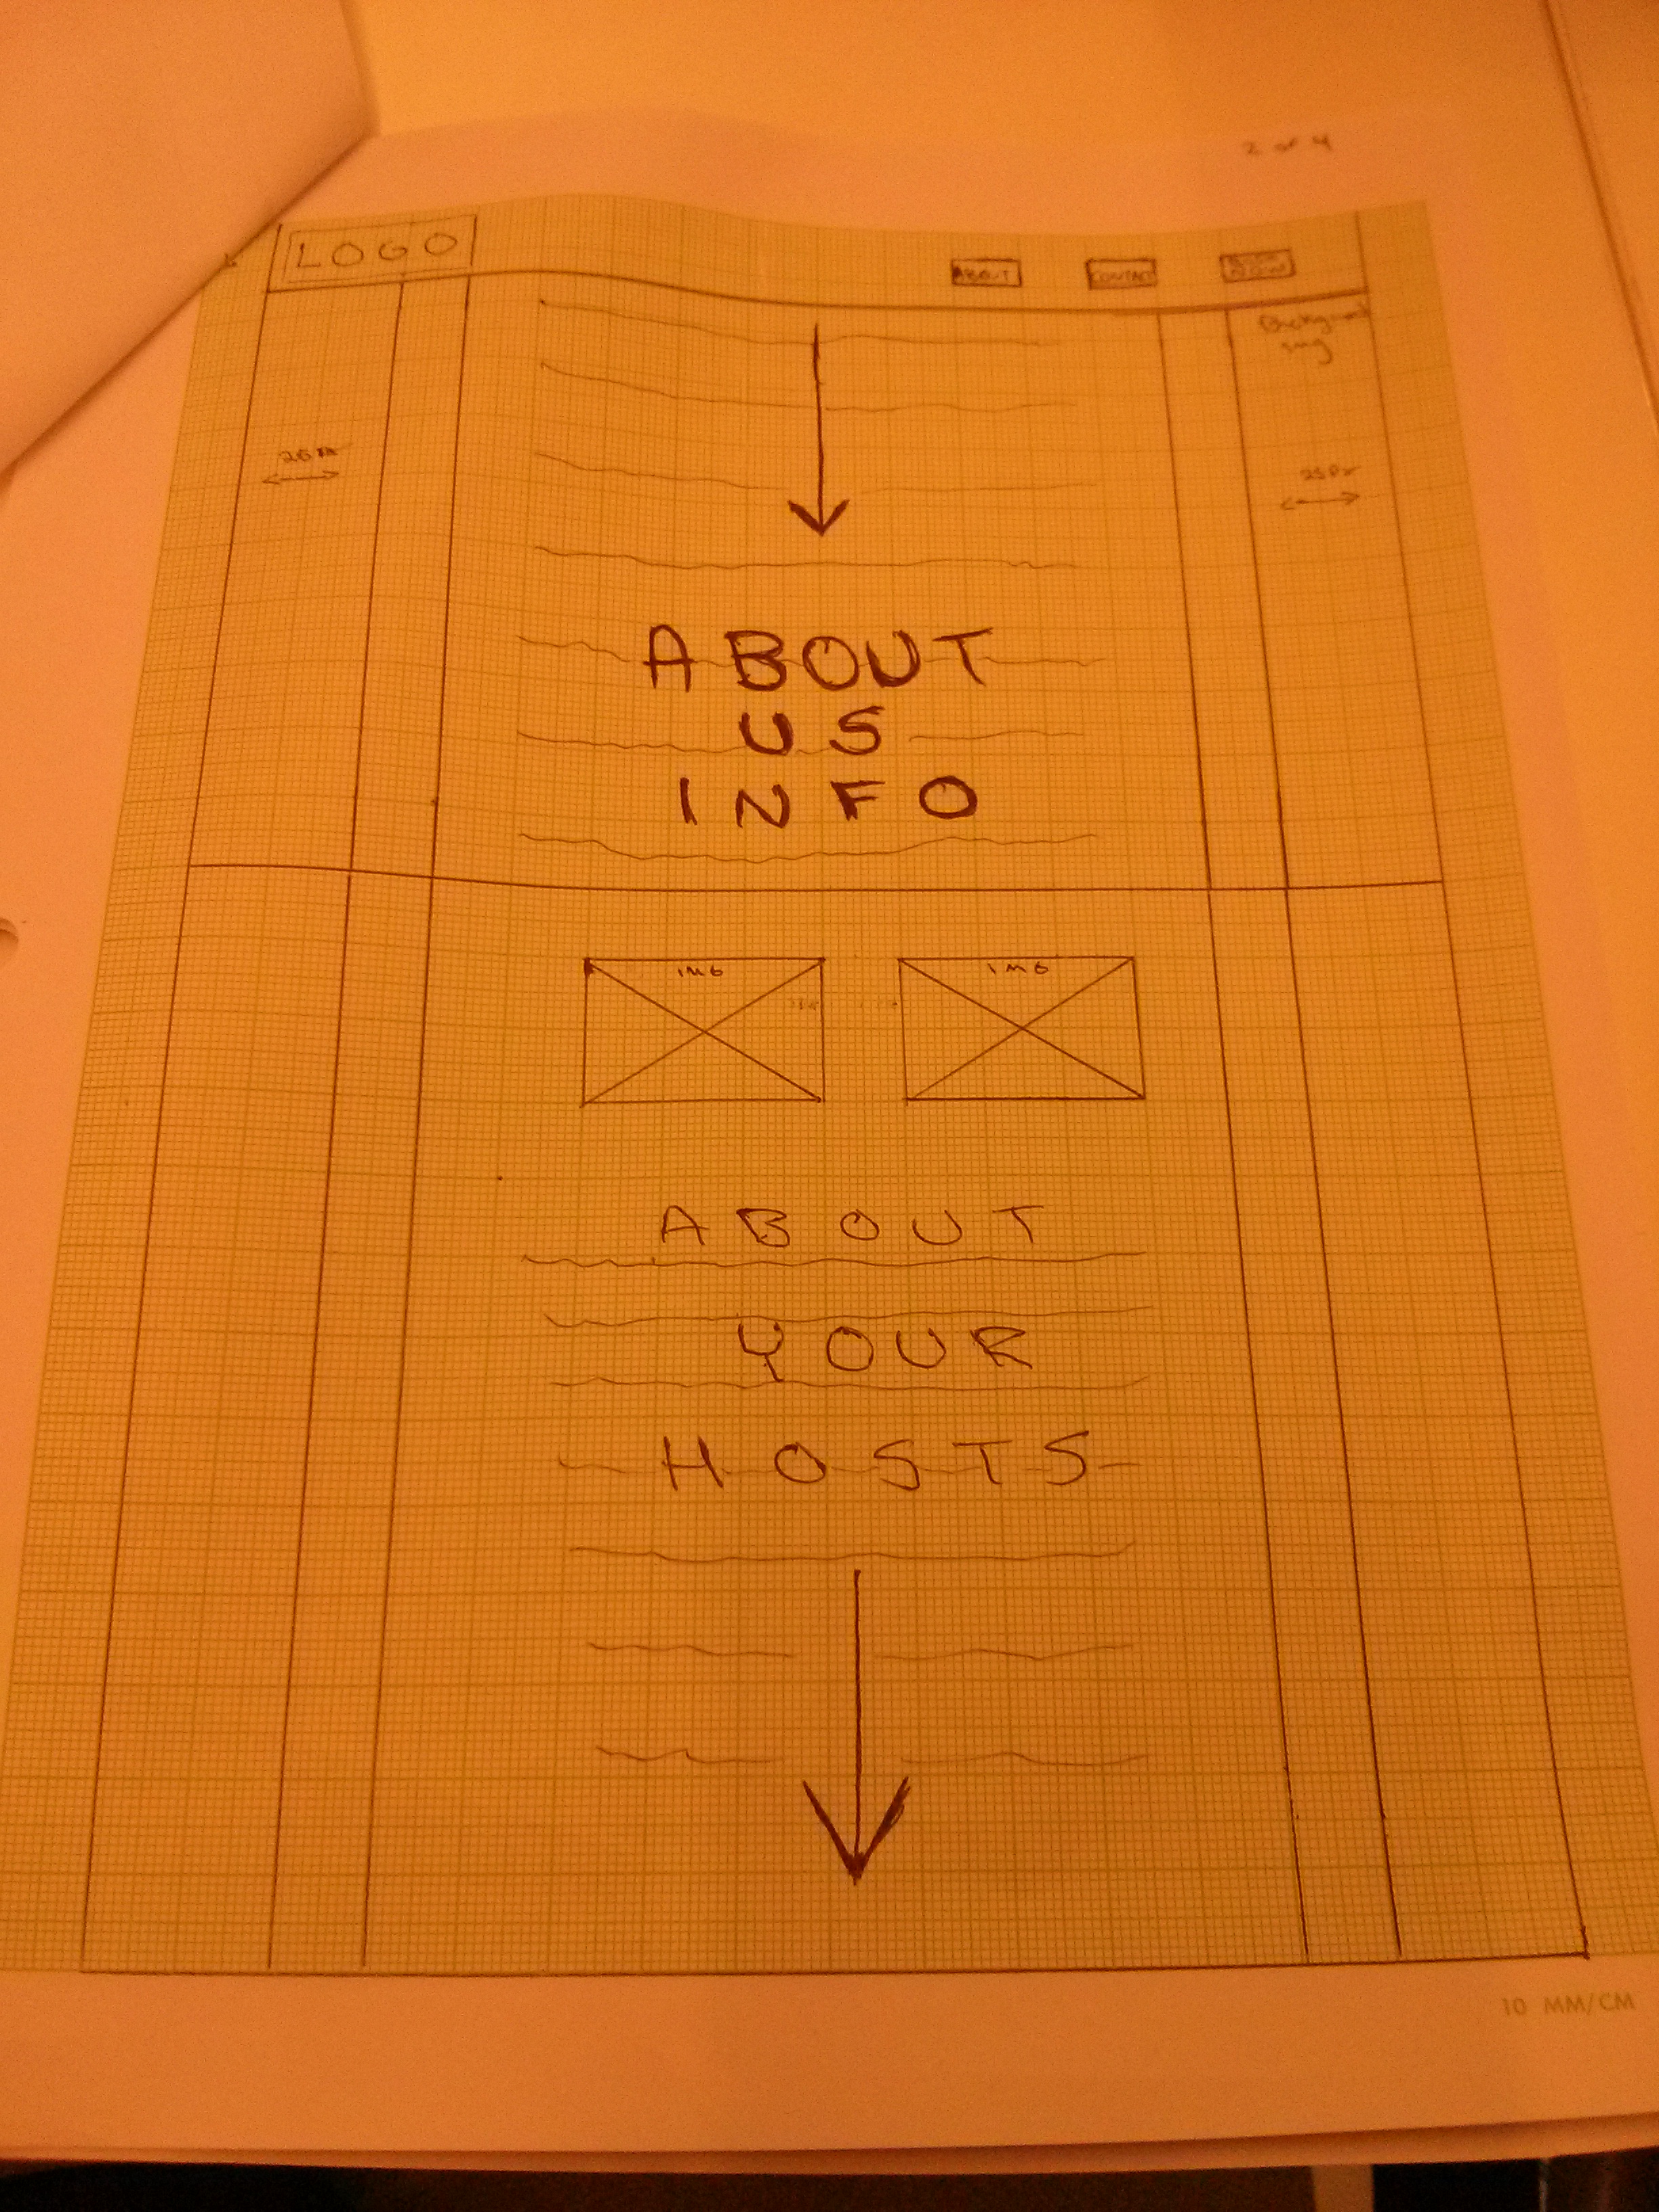 2 of 4
LOGO
ABOUT
CONTACT
NOW
Background
img
25Px
ABOUT
US
INFO
IMG
IMG
ABOUT
YOUR
HOSTS
10 MM/CM